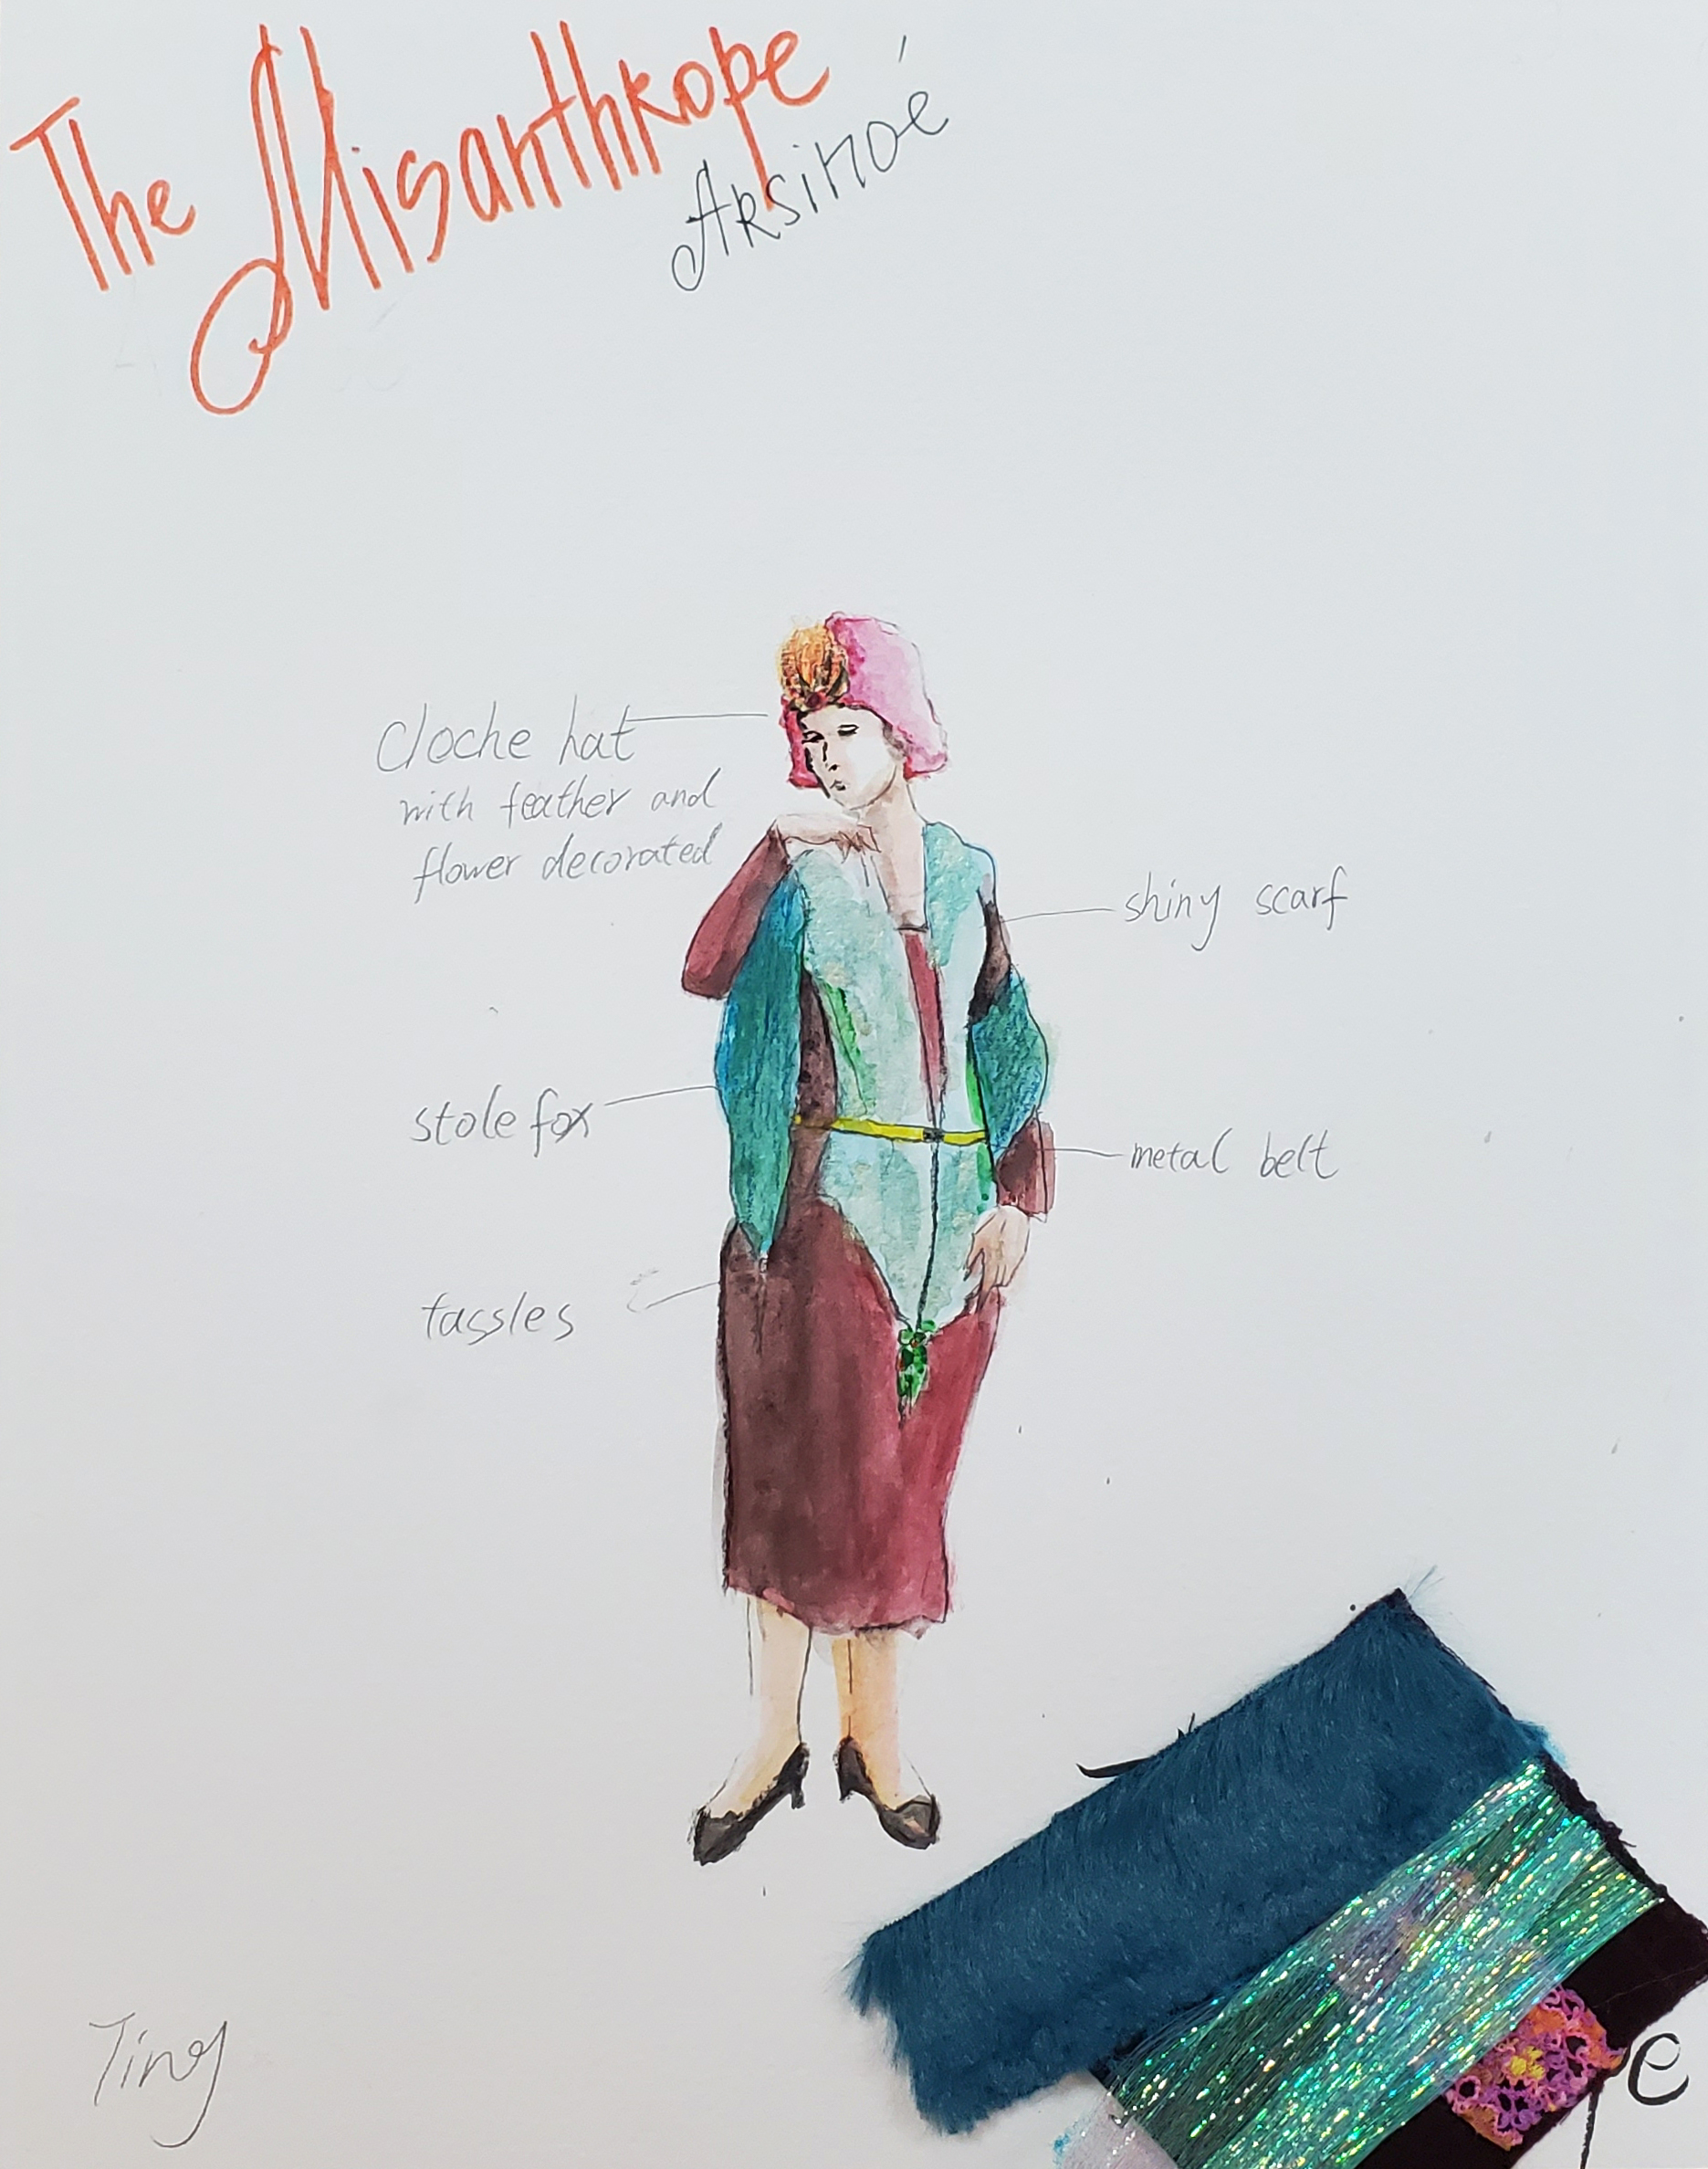 The Misanthrope
Arsinoé
cloche hat
with feather and
flower decorated
shiny scarf
stole fox
metal belt
tassles
Ting
e